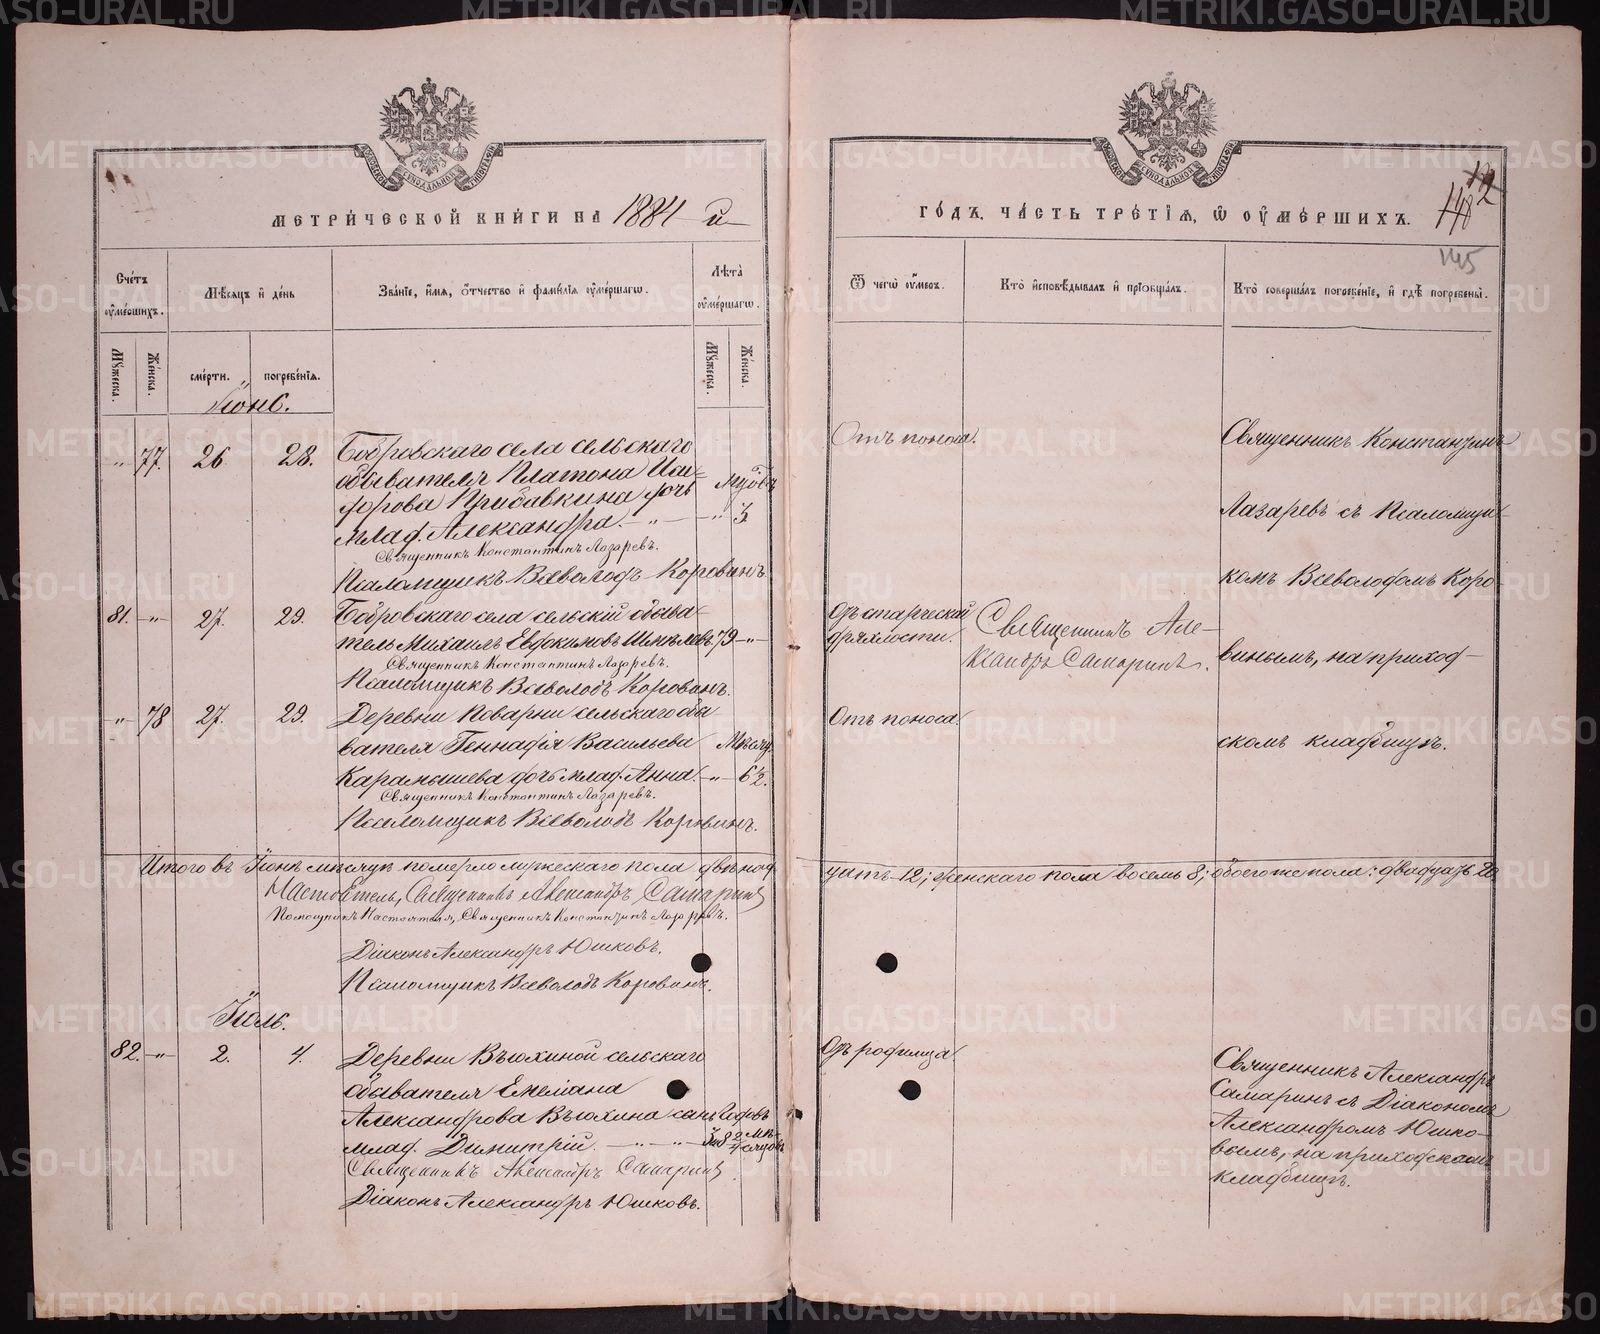 МЕТРИЧЕСКОЙ КНИГИ НА 1881 й
Счетъ оумершихъ.
Мѣсяцъ и день
Званіе, имя, отчество и фамилія оумершагѡ.
Лѣта оумершагѡ.
Мужеска.
Женска.
смерти.
погребенія.
Мужеска.
Женска.
Іюнь.
77. 26. 28. Бобровскаго села сельскаго
обывателя Платона Иси-
дорова Прибавкина дочь
млад. Александра. 3
Священникъ Константинъ Лазаревъ.
Псаломщикъ Всеволодъ Коровинъ.
81. 27. 29. Бобровскаго села сельскій обыва-
тель Михаилъ Евдокимовъ 79
Священникъ Константинъ Лазаревъ.
Псаломщикъ Всеволодъ Коровинъ.
78 27. 29. Деревни Поварни сельскаго обы-
вателя Геннадія Васильева Мѣсяц.
Карамышева дочь млад. Анна. 6½.
Священникъ Константинъ Лазаревъ.
Псаломщикъ Всеволодъ Коровинъ.
Итого въ Іюнѣ мѣсяцѣ померло мужескаго пола двѣнад-
Настоятель, Священникъ Александръ Самаринъ
Помощникъ Настоятеля, Священникъ Константинъ Лазаревъ.
Діаконъ Александръ Юшковъ.
Псаломщикъ Всеволодъ Коровинъ.
Іюль.
82. 2. 4. Деревни Вьюхиной сельскаго
обывателя Емеліана
Александрова Вьюхина сынъ
млад. Димитрій.
Священникъ Александръ Самаринъ
Діаконъ Александръ Юшковъ.
ГОДЪ, ЧАСТЬ ТРЕТІЯ, Ѡ ОУМЕРШИХЪ.
145
Ѿ чегѡ оумеръ.
Кто исповѣдывалъ и пріобщалъ.
Кто совершалъ погребеніе, и гдѣ погребены.
Отъ поноса.
Священникъ Константинъ
Лазаревъ съ Псаломщи-
комъ Всеволодомъ Коро-
Отъ старческой
дряхлости.
Священникъ Але-
ксандръ Самаринъ.
винымъ, на приход-
Отъ поноса.
скомъ кладбищѣ.
цать 12; женскаго пола восемь 8; обоего же пола: двадцать 20
Отъ родимца.
Священникъ Александръ
Самаринъ съ Діакономъ
Александромъ Юшко-
вымъ, на приходскомъ
кладбищѣ.
METRIKI.GASO-URAL.RU